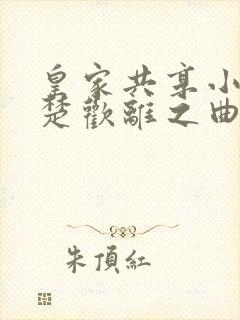 皇家共享小
楚歡離之曲
朱頂紅